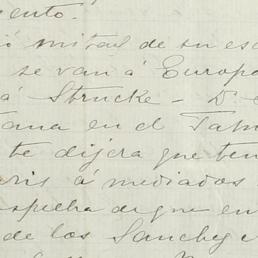 ento.
ó mitad de su es
se van á Europa
á Strucke - D
tana en el
te dijera que ten
ris á mediados
specha de que en
de los Sanchez